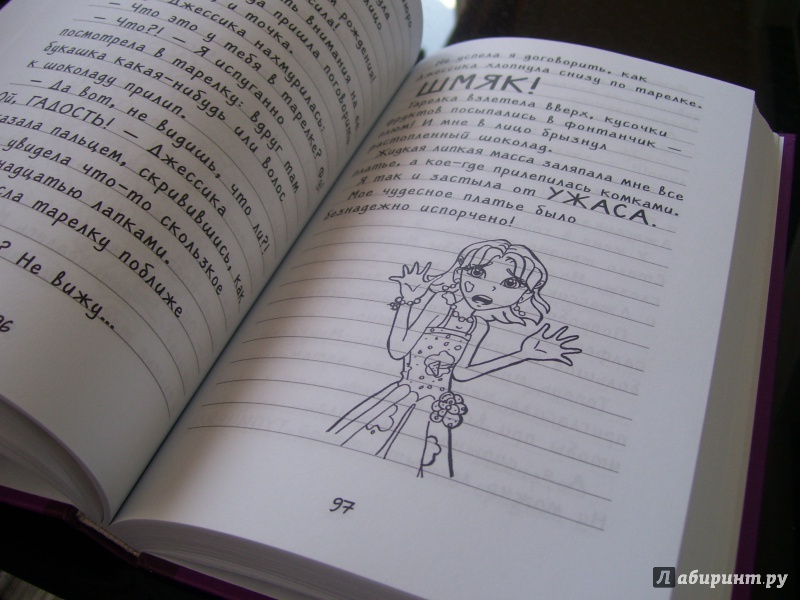 рождения!
сила!
и точка.
да пришла поговорить
ть внимания на ее
— Что это у тебя в тарелке?
Джессика нахмурилась.
— Что?! — Я испуганно
посмотрела в тарелку: вдруг там
букашка какая-нибудь или волос
к шоколаду прилип.
— Да вот, не видишь, что ли?!
Ой, ГАДОСТЬ! — Джессика
казала пальцем, скривившись, как
увидела что-то скользкое
надцатью лапками.
сла тарелку поближе
? Не вижу...
96
Не успела я договорить, как
Джессика хлопнула снизу по тарелке.
ШМЯК!
Тарелка взлетела вверх, кусочки
фруктов посыпались в фонтанчик —
блюм! И мне в лицо брызнул
растопленный шоколад.
Жидкая липкая масса заляпала мне все
платье, а кое-где прилепилась комками.
Я так и застыла от УЖАСА.
Мое чудесное платье было
безнадежно испорчено!
97
Лабиринт.ру